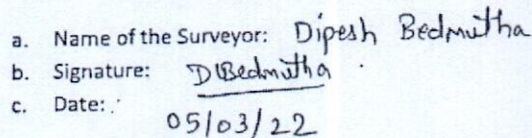 a. Name of the Surveyor: Dipesh Bedmutha
b. Signature: DBedmutha
c. Date: 05/03/22